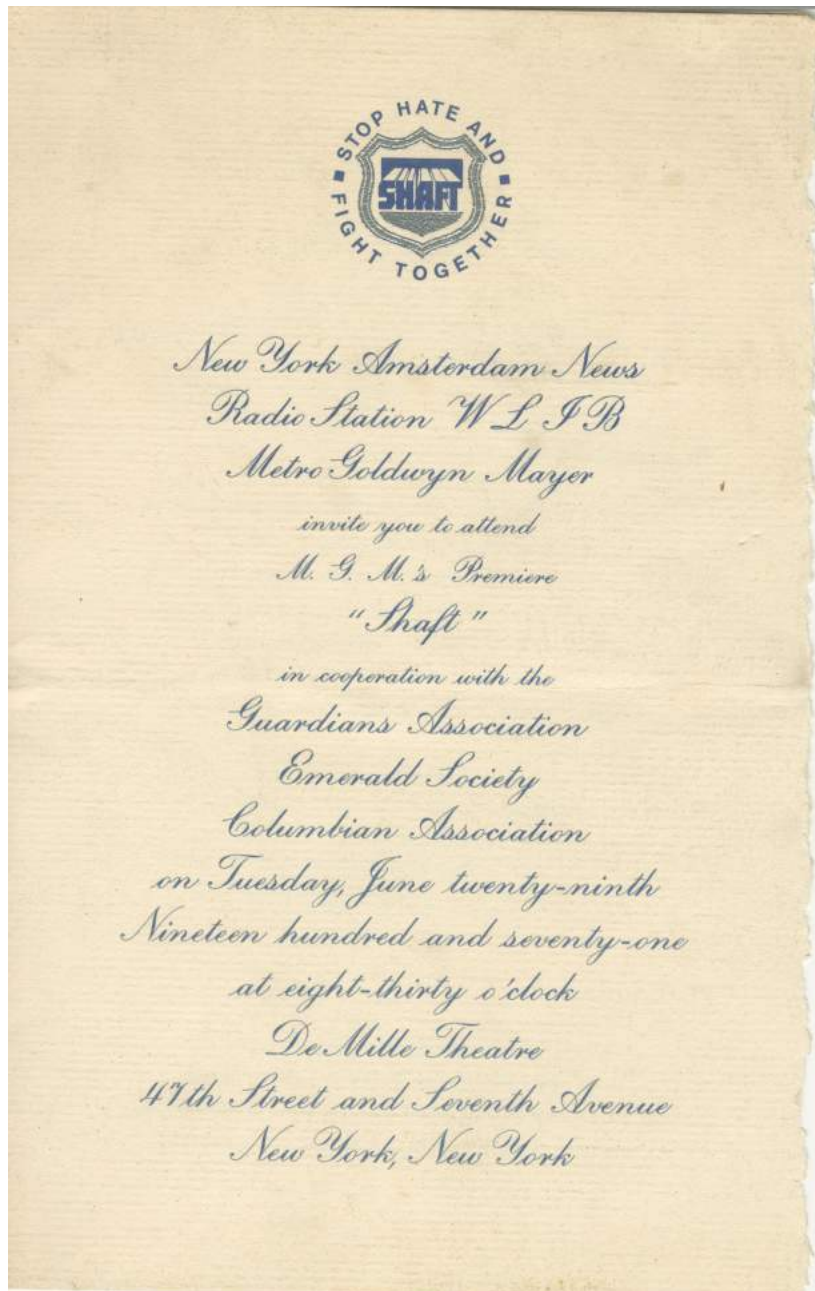 STOP HATE AND
SHAFT
FIGHT TOGETHER
New York Amsterdam News
Radio Station W L I B
Metro Goldwyn Mayer
invite you to attend
M. G. M.'s Premiere
"Shaft"
in cooperation with the
Guardians Association
Emerald Society
Columbian Association
on Tuesday, June twenty-ninth
Nineteen hundred and seventy-one
at eight-thirty o'clock
De Mille Theatre
47th Street and Seventh Avenue
New York, New York